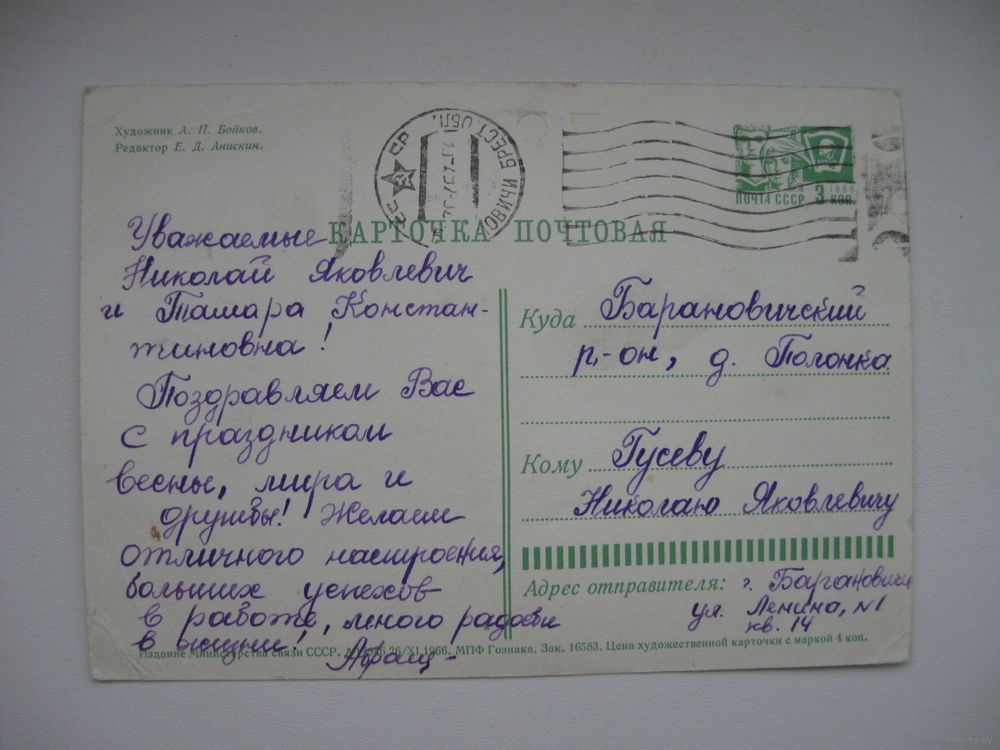 Художник А. П. Бойков.
Редактор Е. Д. Анискин.
БРЕСТ. ОБЛ.
ПОЧТА СССР 3 КОП.
1966
КАРТОЧКА ПОЧТОВАЯ
Уважаемые
Николай Яковлевич
и Тамара Констан-
тиновна!
Поздравляем Вас
с праздником
весны, мира и
дружбы! Желаем
отличного настроения,
больших успехов
в работе, много радости
в жизни!
Куда Барановичский
р-он, д. Полонка
Кому Гусеву
Николаю Яковлевичу
Адрес отправителя: г. Барановичи
ул. Ленина, №1
кв. 14
Издание Министерства связи СССР. 26/XI 1966. МПФ Гознака. Зак. 16583. Цена художественной карточки с маркой 4 коп.